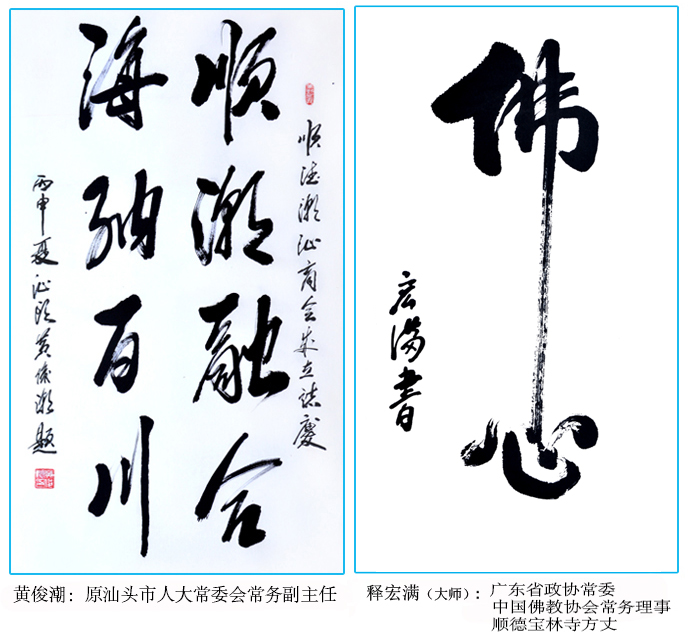 顺德潮汕商会成立誌慶
顺潮融合
海纳百川
丙申夏汕头黄俊潮题
佛心
宏满書
黄俊潮：原汕头市人大常委会常务副主任
释宏满（大师）：广东省政协常委
中国佛教协会常务理事
顺德宝林寺方丈